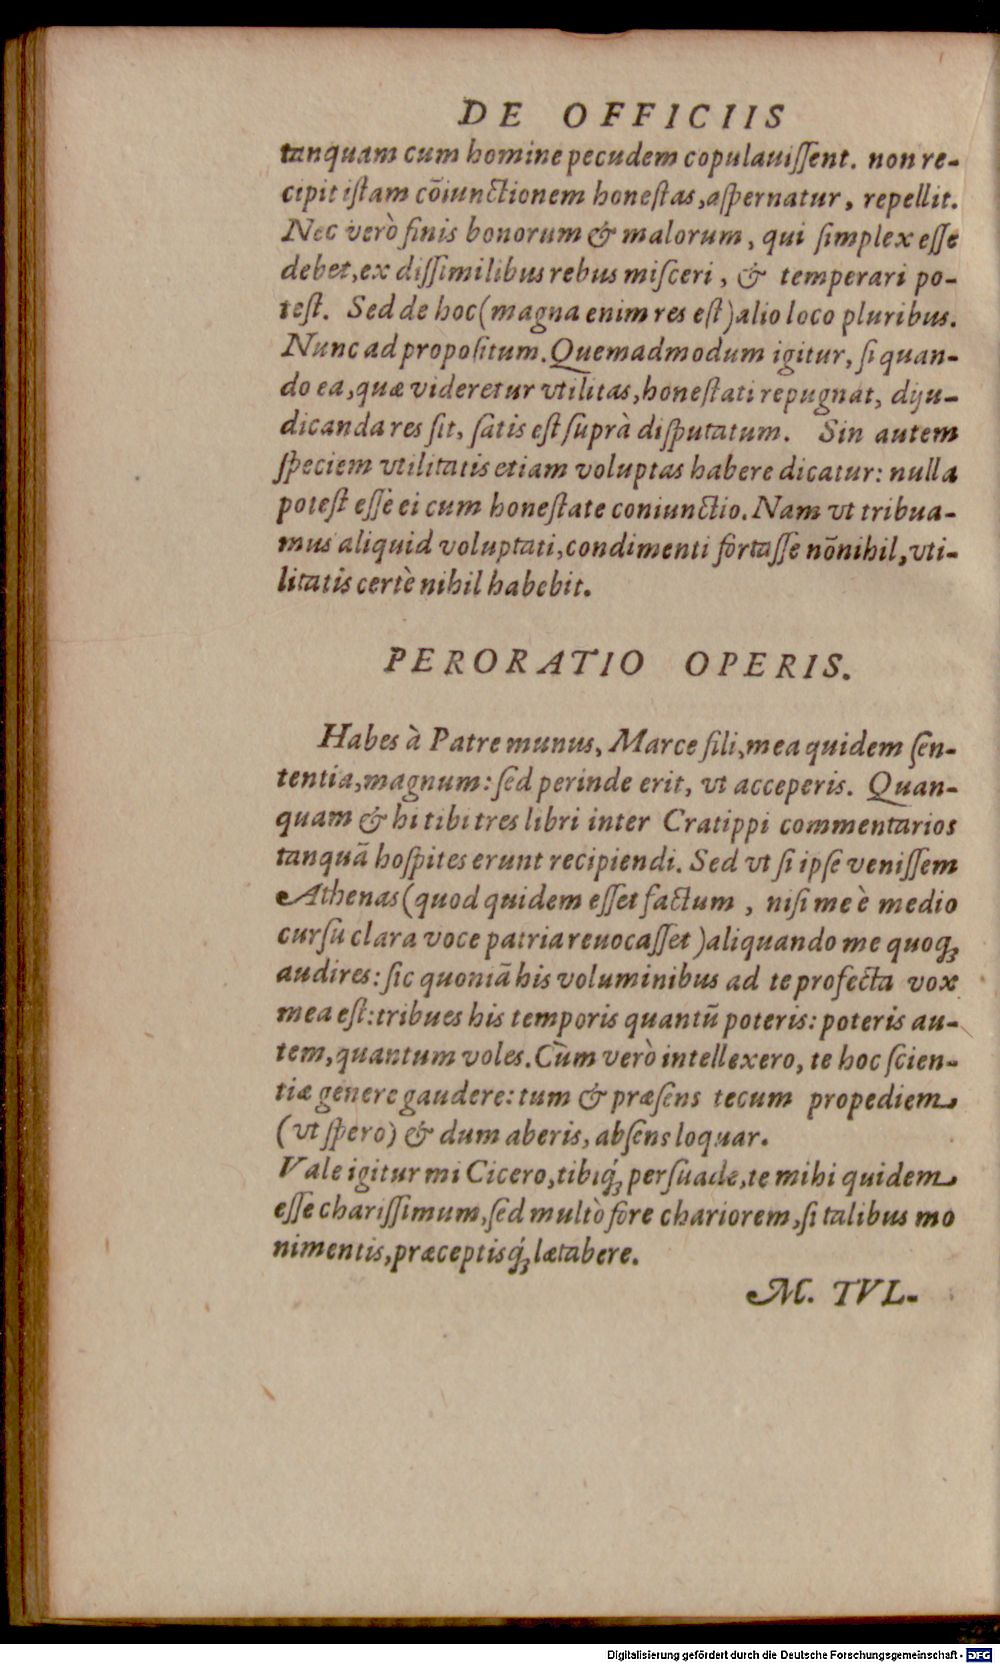 DE OFFICIIS
tanquam cum homine pecudem copulauiſſent. non re-
cipit iſtam cōiunctionem honeſtas, aſpernatur, repellit.
Nec verò finis bonorum & malorum, qui ſimplex eſſe
debet, ex diſſimilibus rebus miſceri, & temperari po-
teſt. Sed de hoc (magna enim res eſt) alio loco pluribus.
Nunc ad propoſitum. Quemadmodum igitur, ſi quan-
do ea, quæ videretur vtilitas, honeſtati repugnāt, diju-
dicanda res ſit, ſatis eſt ſuprà diſputatum. Sin autem
ſpeciem vtilitatis etiam voluptas habere dicatur: nulla
poteſt eſſe ei cum honeſtate coniunctio. Nam vt tribua-
mus aliquid voluptati, condimenti fortaſſe nōnihil, vti-
litatis certè nihil habebit.
PERORATIO OPERIS.
Habes à Patre munus, Marce fili, mea quidem ſen-
tentia, magnum: ſed perinde erit, vt acceperis. Quan-
quam & hi tibi tres libri inter Cratippi commentarios
tanquā hoſpites erunt recipiendi. Sed vt ſi ipſe veniſſem
Athenas (quod quidem eſſet factum, niſi me è medio
curſu clara voce patria reuocaſſet) aliquando me quoq;
audires: ſic quoniā his voluminibus ad te profecta vox
mea eſt: tribues his temporis quantū poteris: poteris au-
tem, quantum voles. Cùm verò intellexero, te hoc ſcien-
tiæ genere gaudere: tum & præſens tecum propediem
(vt ſpero) & dum aberis, abſens loquar.
Vale igitur mi Cicero, tibiq́; perſuade, te mihi quidem
eſſe chariſſimum, ſed multò fore chariorem, ſi talibus mo
nimentis, præceptisq́; lætabere.
M. TVL-
Digitalisierung gefördert durch die Deutsche Forschungsgemeinschaft - DFG